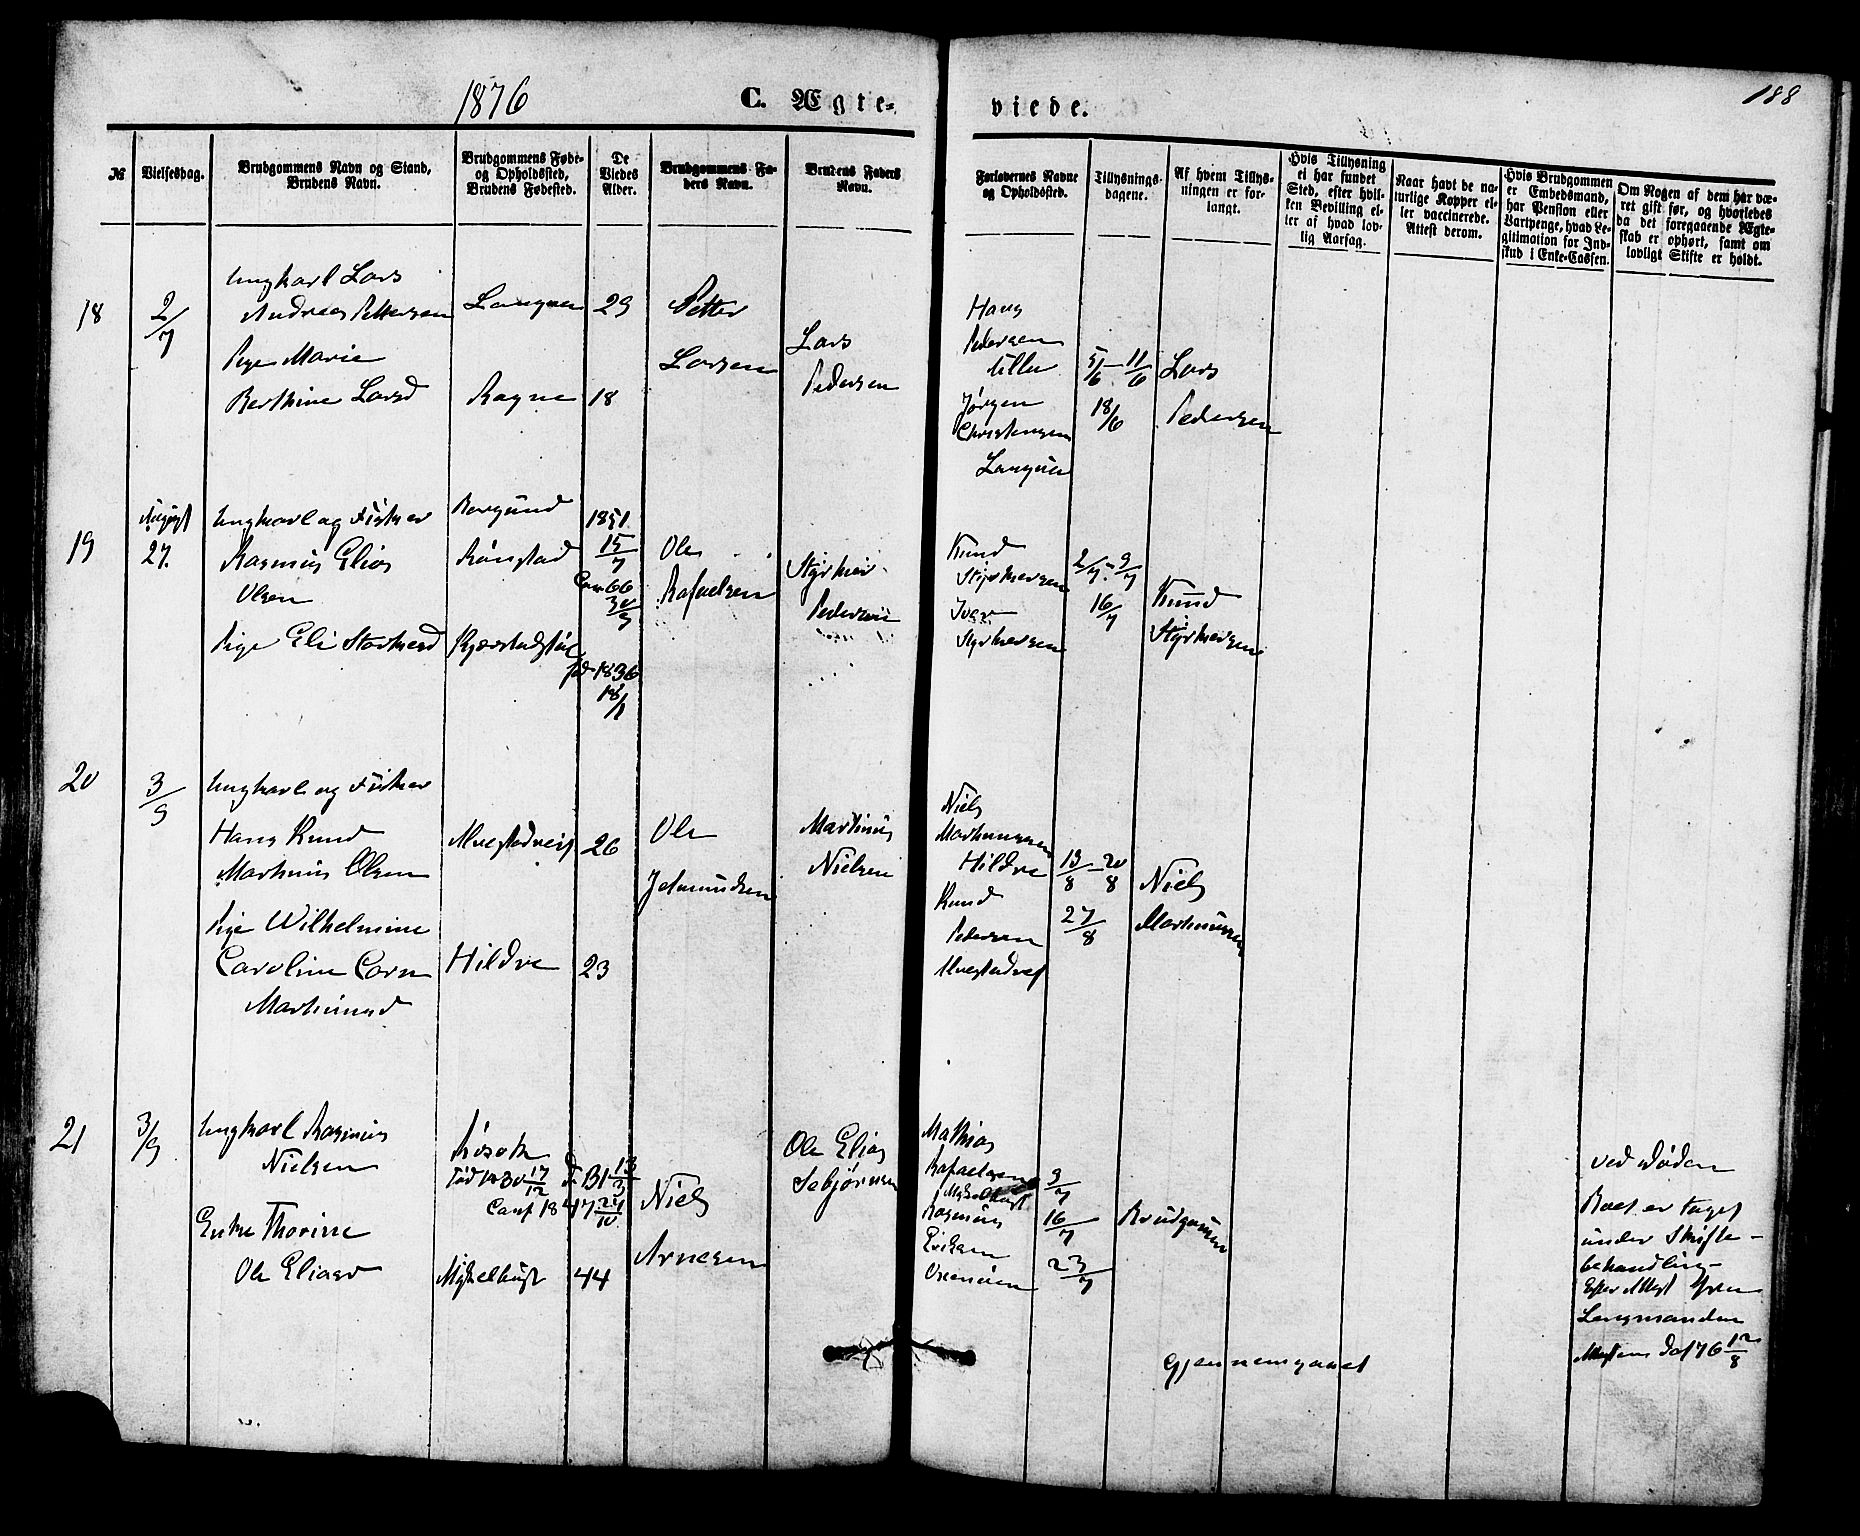 1876
C. Ægte-
viede.
188
№
Vielsesdag.
Brudgommens Navn og Stand,
Brudens Navn.
Brudgommens Føde-
og Opholdsted,
Brudens Fødested.
De
Viedes
Alder.
Brudgommens Fa-
ders Navn.
Brudens Faders
Navn.
Forlovernes Navne
og Opholdsted.
Tillysnings-
dagene.
Af hvem Tillys-
ningen er for-
langt.
Hvis Tillysning
ei har fundet
Sted, efter hvil-
ken Bevilling el-
ler af hvad lov-
lig Aarsag.
Naar havt de na-
turlige Kopper el-
ler vaccinerede.
Attest derom.
Hvis Brudgommen
er Embedsmand,
har Pension eller
Vartpenge, hvad Le-
gitimation for Ind-
skud i Enke-Cassen.
Om Nogen af dem har væ-
ret gift før, og hvorledes
da det foregaaende Ægte-
skab er ophørt, samt om
lovligt Skifte er holdt.
18
2/7
Ungkarl Lars
Andreas Pettersen
Pige Marie
Berthine Larsd
Longva
Rogne
29
18
Petter
Larsen
Lars
Pedersen
Hans
Pedersen
Ulla
Jørgen
Christensen
Longva
5/6 - 11/6
18/6
Lars
Pedersen
19
August
27.
Ungkarl og Fisker
Rasmus Elias
Olsen
Pige Eli Storkersd
Borgund
Rønstad
Kjærstadstøl
1851
15/7
Conf 66
30/9
fød 1836
18/1
Ole
Rafaelsen
Styrker
Pedersen
Knud
Styrkersen
Iver
Styrkersen
2/7 - 9/7
16/7
Knud
Styrkersen
20
3/9
Ungkarl og Fisker
Hans Knud
Martinus Olsen
Pige Wilhelmine
Caroline Corn
Martinusd
Alvestadvig
Hildre
26
23
Ole
Jetmundsen
Martinus
Nielsen
Niels
Martinussen
Hildre
Knud
Pedersen
Alvestadvig
13/8 - 20/8
27/8
Niels
Martinussen
21
3/9
Ungkarl Rasmus
Nielsen
Enke Thorine
Ole Eliasd
Røsok
Fød 1830 17/12 D 31 13/3
Conf 1847 24/10
Mykelbust
44
Niels
Arnesen
Ole Elias
Sebjørnsen
Mathias
Rafaelsen
Mykelbust
Rasmus
Eriksen
9/7
16/7
23/7
Brudgommen
ved Døden
Boet er taget
under Skifte-
behandling
Efter Attest fra
Lensmanden
dat 76 12/8
Gjennemgaaet